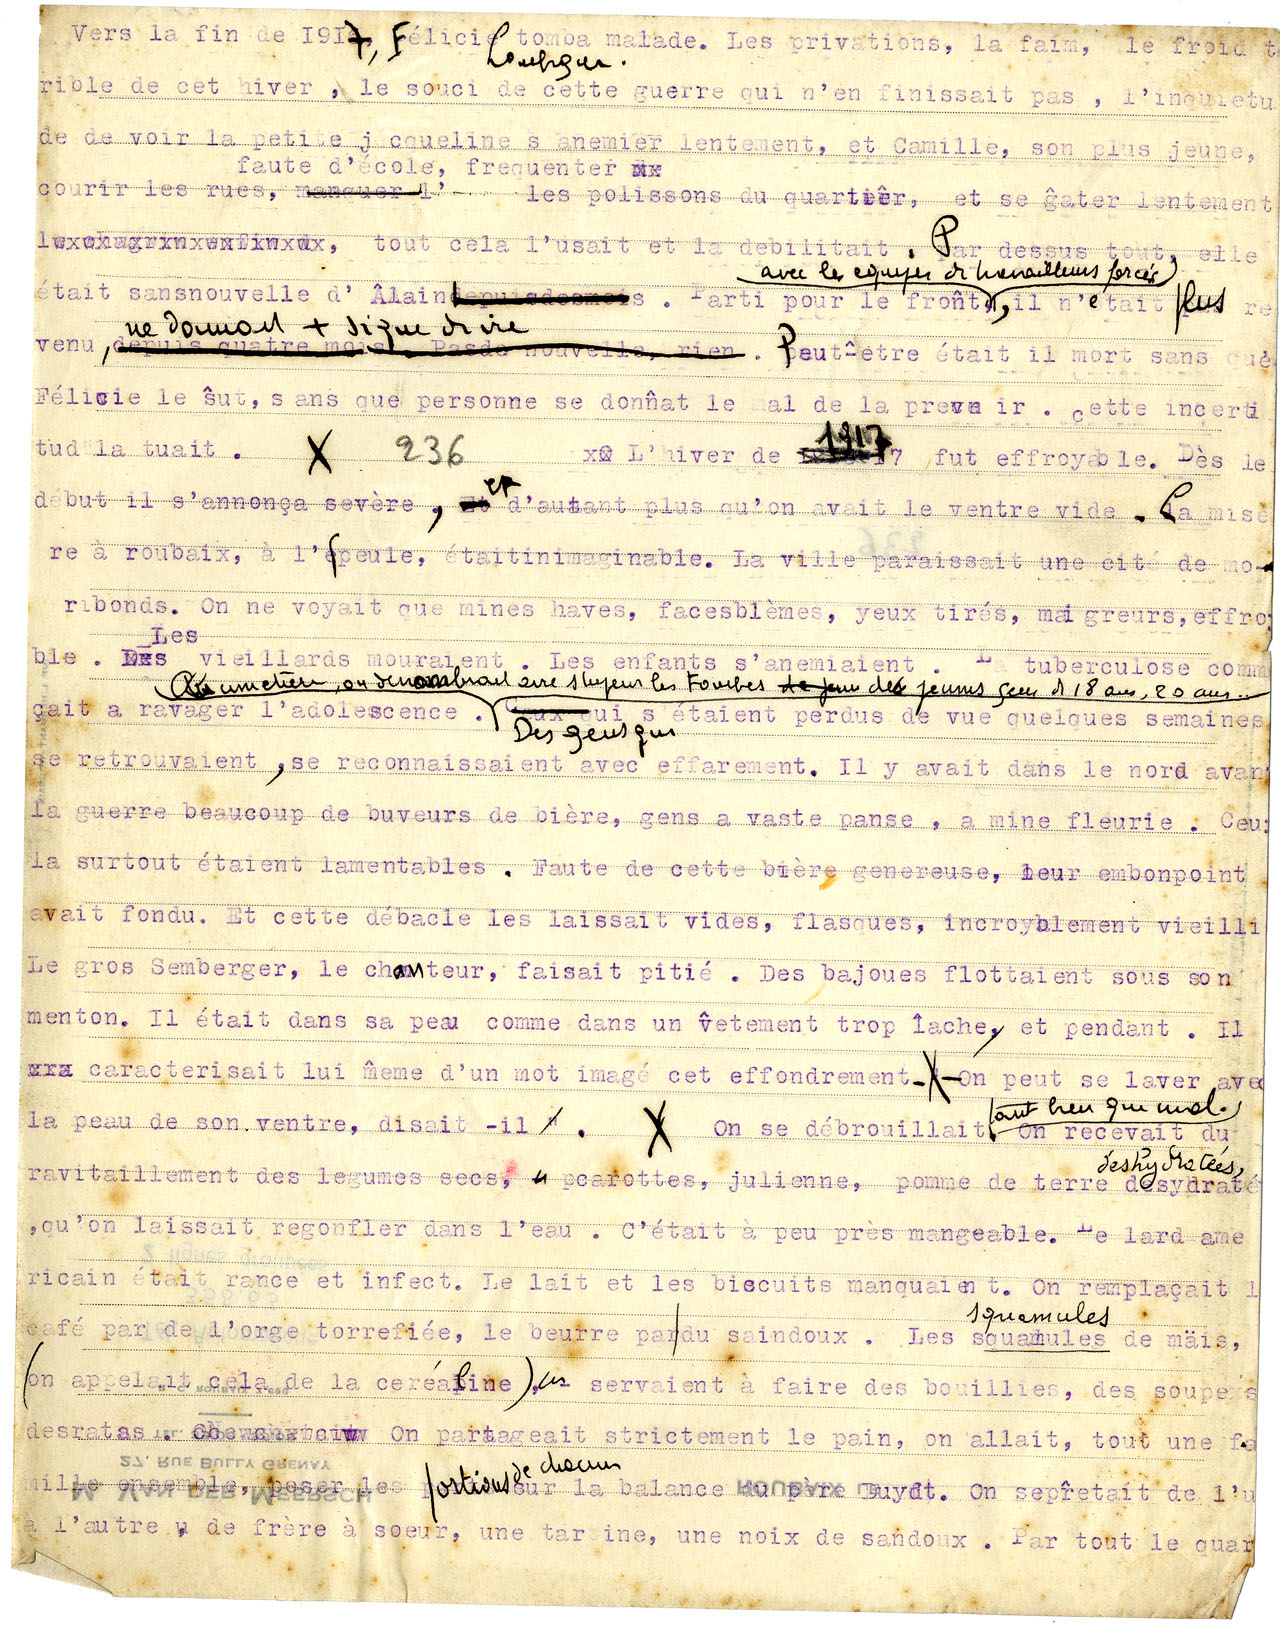 Vers la fin de I917, Félicie tomba malade. Les privations, la faim, le froid t
rible de cet hiver , le souci de cette guerre qui n'en finissait pas , l'inquietu
de de voir la petite j cqueline s anemier lentement, et Camille, son plus jeune,
faute d'école, frequenter xx
courir les rues, manquer l' les polissons du quartiêr, et se ĝater lentement
tout cela l'usait et la debilitait . Par dessus tout, elle
avec les équipes de travailleurs forcés
était sansnouvelle d' Âlain depuisdesmois . Parti pour le froñt, il n'était plus re
ne donnait + signe de vie
venu, depuis quatre mois . Pasde nouvelle, rien . Peut-etre était il mort sans que
Félicie le ŝut, s ans que personne se donn̂at le mal de la preve ir . Cette incerti
tud la tuait . X 236 L'hiver de 1917 fut effroyable. Dès le
début il s'annonça sevère , et d'autant plus qu'on avait le ventre vide . La misè
re à roubaix, à l'épeule, étaitinimaginable. La ville paraissait une cité de mo-
ribonds. On ne voyait que mines haves, facesblèmes, yeux tirés, mai greurs,effro
Les
ble . Des vieillards mouraient . Les enfants s'anemiaient . La tuberculose comm
Au cimetière, on dénombrait avec stupeur les tombes de jeunes gens de 18 ans, 20 ans..
çait a ravager l'adolescence . Ceux qui s'étaient perdus de vue quelques semaines
Des gens qui
se retrouvaient ,se reconnaissaient avec effarement. Il y avait dans le nord avan
la guerre beaucoup de buveurs de bière, gens a vaste panse , a mine fleurie . Ceux
la surtout étaient lamentables . Faute de cette bière genereuse, leur embonpoint
avait fondu. Et cette débacle les laissait vides, flasques, incroyblement vieilli
Le gros Semberger, le chanteur, faisait pitié . Des bajoues flottaient sous son
menton. Il était dans sa peau comme dans un v̂etement trop l̂ache, et pendant . Il
xxx caracterisait lui m̂eme d'un mot imagé cet effondrement - X - On peut se laver avec
tant bien que mal.
la peau de son ventre, disait -il . X On se débrouillait. On recevait du
déshydratées,
ravitaillement des legumes secs, pcarottes, julienne, pomme de terre désydraté
,qu'on laissait regonfler dans l'eau . C'était à peu près mangeable. Le lard ame
ricain était rance et infect. Le lait et les biscuits manquaien t. On remplaçait l
squamules
café par de l'orge torrefiée, le beurre par du saindoux . Les squamules de mäis,
(on appelait cela de la ceréaline), servaient à faire des bouillies, des soupexs
desratas . On partageait strictement le pain, on allait, tout une fa
portions de chacun
mille ensemble, peser les sur la balance du père Duydt. On sepr̂etait de l'u
a l'autre , de frère à soeur, une tar ine, une noix de sandoux . Par tout le quar
M. VAN DER MEERSCH
27, RUE BULLY GRENAY
ROUBAIX